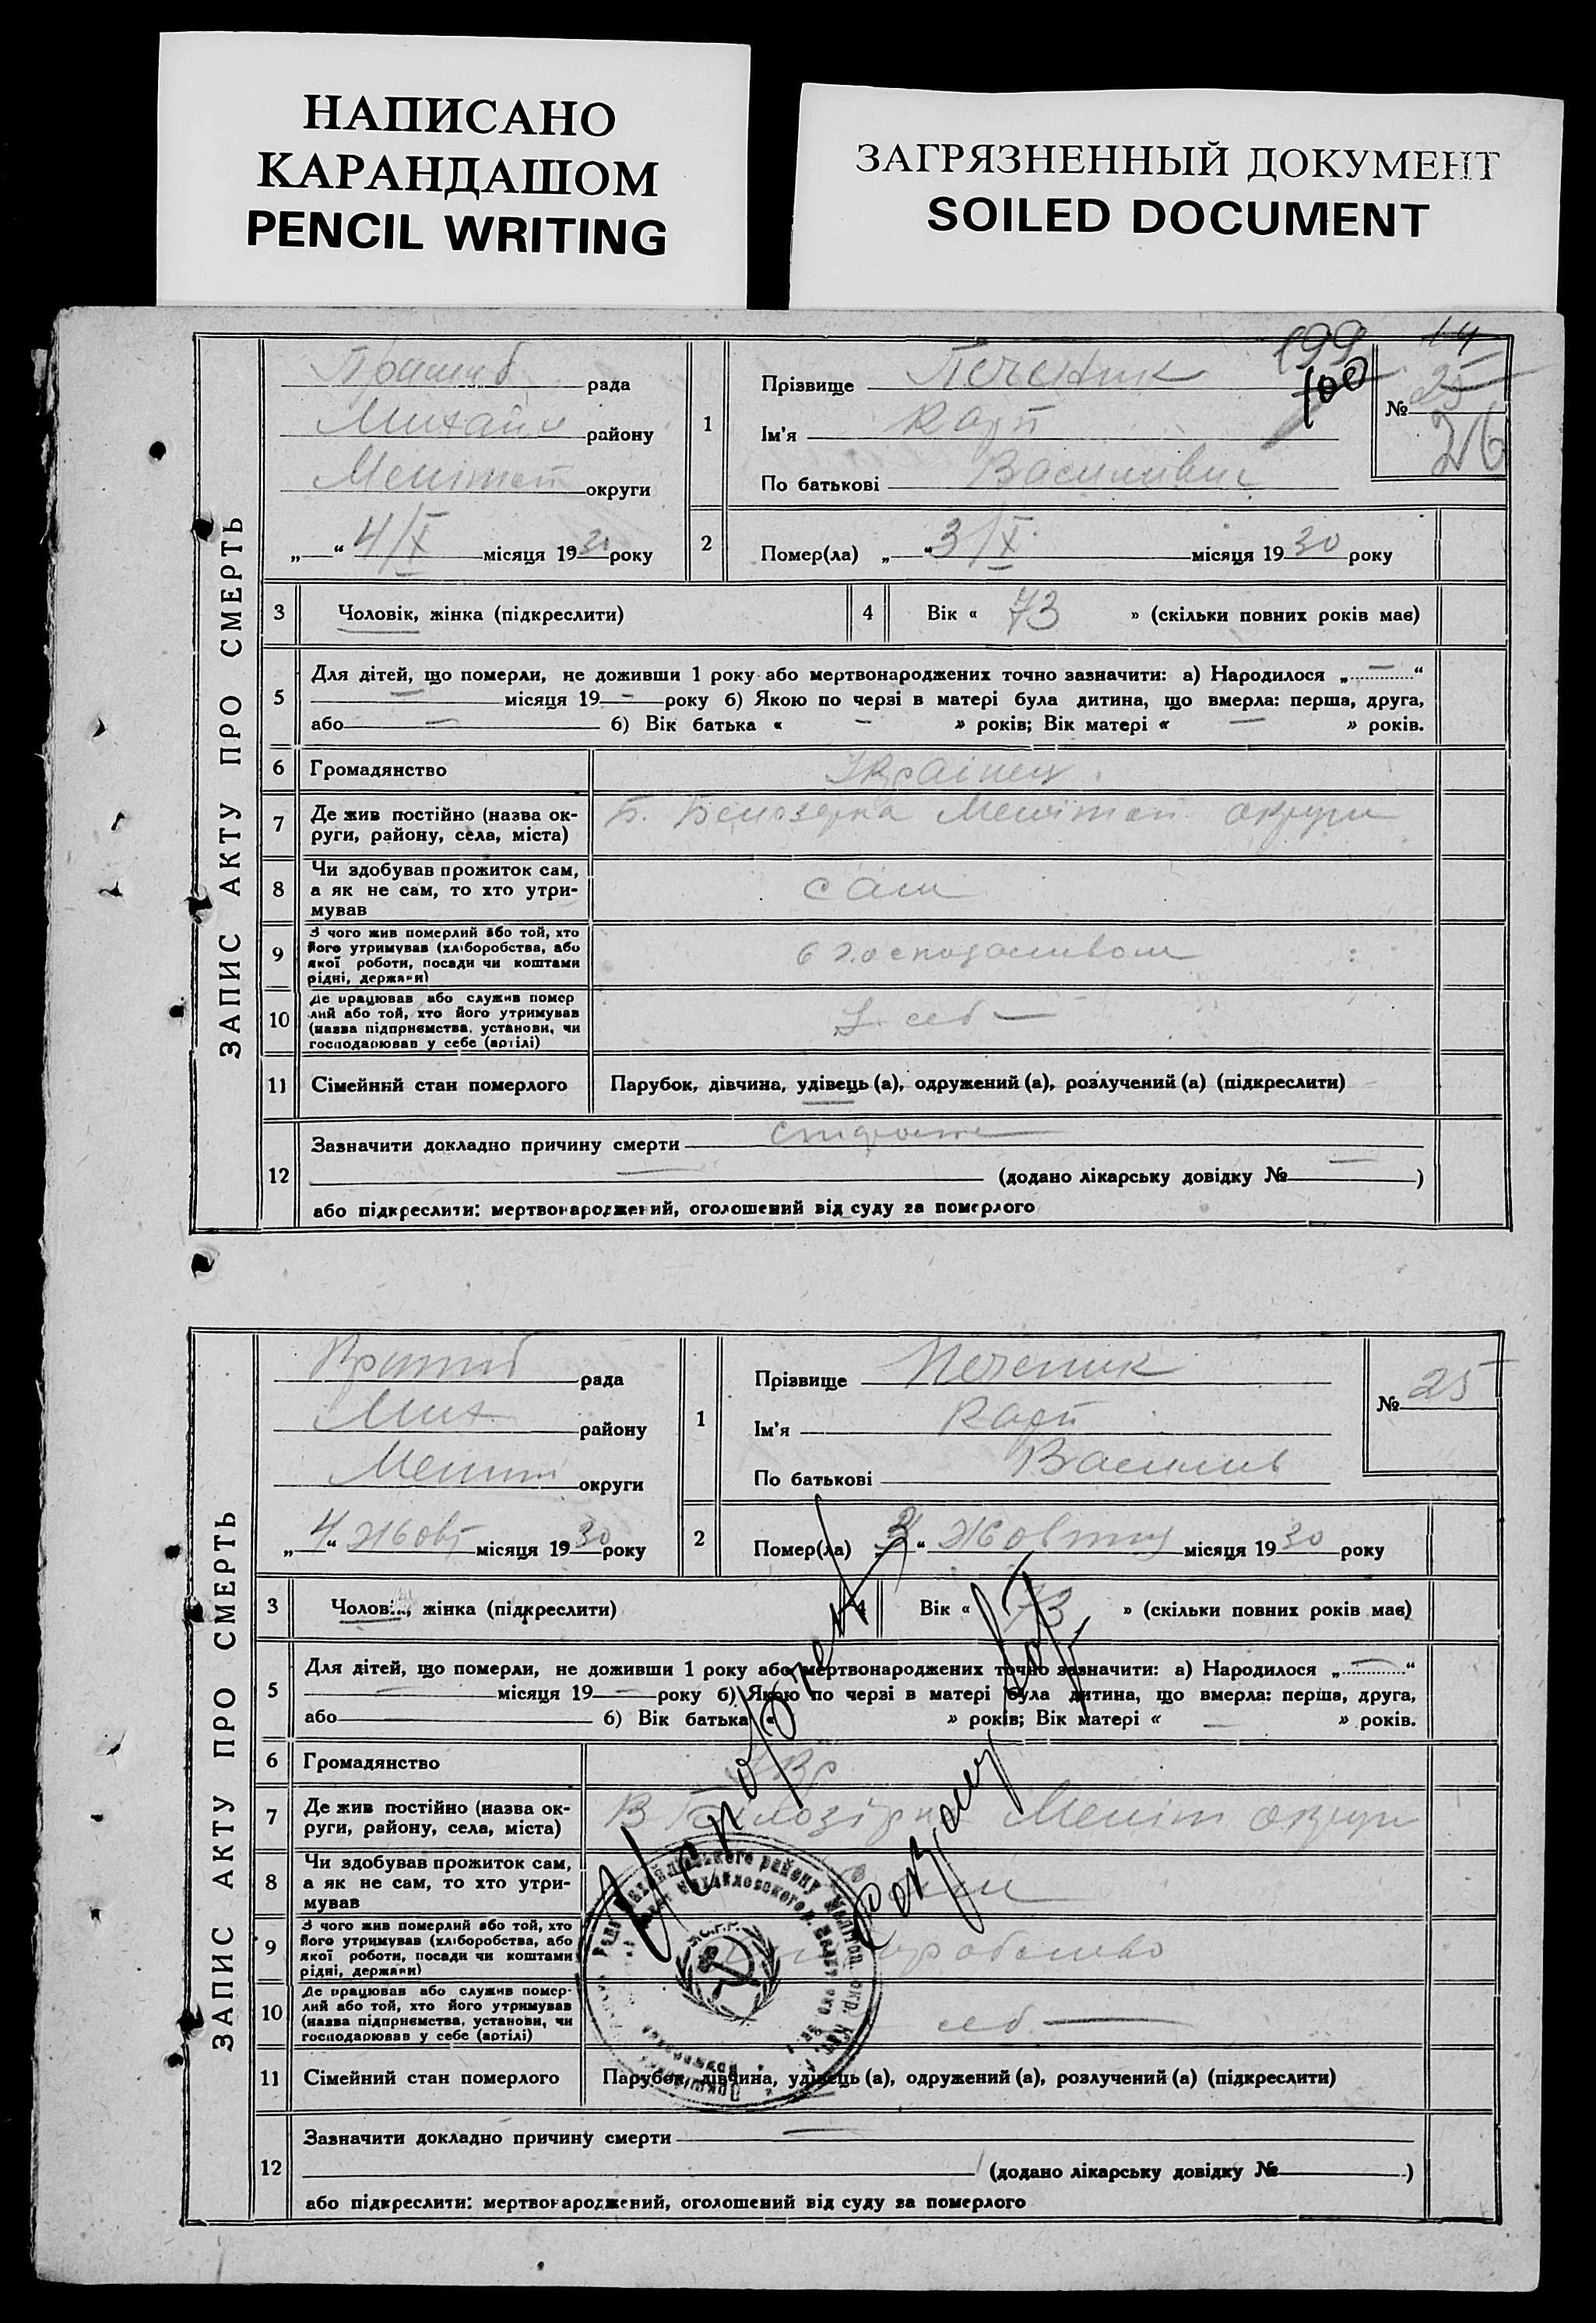 НАПИСАНО
КАРАНДАШОМ
PENCIL WRITING
ЗАГРЯЗНЕННЫЙ ДОКУМЕНТ
SOILED DOCUMENT
ЗАПИС АКТУ ПРО СМЕРТЬ
199
100
14
№ 25
26
Пришиб рада
Михайл району
Меліттоп округи
„ “ 4/X місяця 1930 року
1
Прізвище Печеник
Ім'я Карп
По батькові Василивич
2 Помер(ла) „ “ 3/X місяця 1930 року
3 Чоловік, жінка (підкреслити)
4 Вік « 73 » (скільки повних років має)
5 Для дітей, що померли, не доживши 1 року або мертвонароджених точно зазначити: а) Народилося „ — “
— місяця 19 — року б) Якою по черзі в матері була дитина, що вмерла: перша, друга,
або — б) Вік батька « — » років; Вік матері « — » років.
6 Громадянство Українец
7 Де жив постійно (назва ок-
руги, району, села, міста)
Б. Белозерка Меліттоп округи
8 Чи здобував прожиток сам,
а як не сам, то хто утри-
мував
сам
9 З чого жив померлий або той, хто
його утримував (хліборобства, або
якої роботи, посади чи коштами
рідні, держави)
10 Де працював або служив помер
лий або той, хто його утримував
(назва підприємства, установи, чи
господарював у себе (артілі)
У себ —
11 Сімейний стан померлого Парубок, дівчина, удівець (а), одружений (а), розлучений (а) (підкреслити)
12 Зазначити докладно причину смерти
(додано лікарську довідку № — )
або підкреслити: мертвонароджений, оголошений від суду за померлого
ЗАПИС АКТУ ПРО СМЕРТЬ
№ 25
Пришиб рада
Мих району
Меліт округи
„ 4 “ Жовт місяця 1930 року
1
Прізвище Печеник
Ім'я Карп
По батькові Василив
2 Помер(ла) „ 3 “ Жовтня місяця 1930 року
3 Чоловік, жінка (підкреслити)
4 Вік « 73 » (скільки повних років має)
5 Для дітей, що померли, не доживши 1 року або мертвонароджених точно зазначити: а) Народилося „ — “
— місяця 19 — року б) Якою по черзі в матері була дитина, що вмерла: перша, друга,
або б) Вік батька « » років; Вік матері « — » років.
6 Громадянство Укр
7 Де жив постійно (назва ок-
руги, району, села, міста)
В Білозірка Меліт округи
8 Чи здобував прожиток сам,
а як не сам, то хто утри-
мував
сам
9 З чого жив померлий або той, хто
його утримував (хліборобства, або
якої роботи, посади чи коштами
рідні, держави)
хліборобство
10 Де працював або служив помер-
лий або той, хто його утримував
(назва підприємства, установи, чи
господарював у себе (артілі)
себ —
11 Сімейний стан померлого Парубок, дівчина, удівець (а), одружений (а), розлучений (а) (підкреслити)
12 Зазначити докладно причину смерти —
(додано лікарську довідку № )
або підкреслити: мертвонароджений, оголошений від суду за померлого